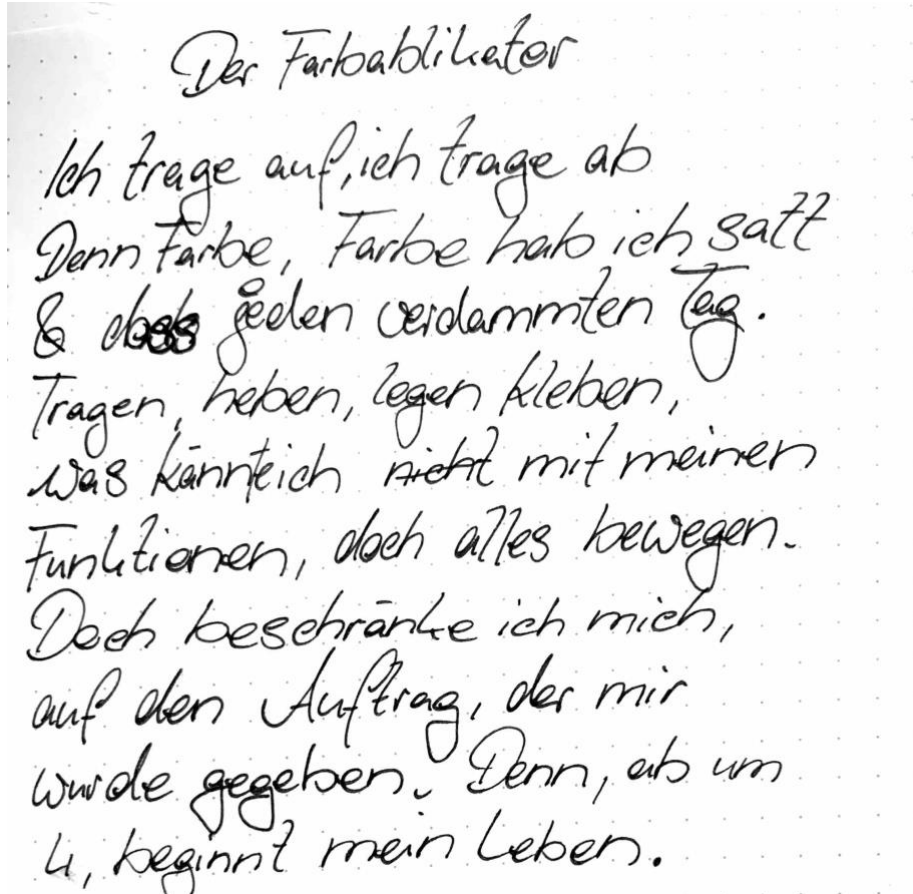 Der Farbablikator
Ich trage auf, ich trage ab
Denn Farbe, Farbe hab ich satt
& das jeden verdammten Tag.
Tragen, heben, legen kleben,
was könnte ich nicht mit meinen
Funktionen, doch alles bewegen.
Doch beschränke ich mich,
auf den Auftrag, der mir
wurde gegeben. Denn, ab um
4, beginnt mein Leben.